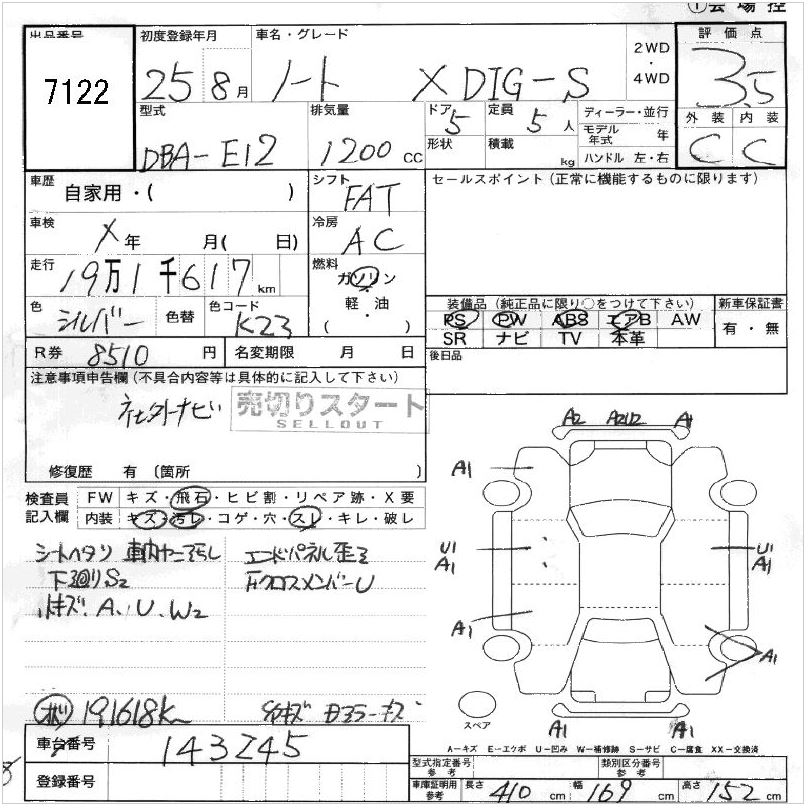 ①会場控
出品番号
7122
初度登録年月
25 8月
車名・グレード
ノート X DIG-S
2WD
・
4WD
評価点
3.5
外装 内装
C C
型式
DBA-E12
排気量
1200 cc
ドア 5
形状
定員 5 人
積載 kg
ディーラー・並行
モデル年式 年
ハンドル 左・右
車歴
自家用・( )
シフト
FAT
セールスポイント(正常に機能するものに限ります)
車検
X年 月( 日)
冷房
AC
走行
19万1千617km
燃料
ガソリン
・
軽・油
( )
色
シルバー
色替
色コード
K23
装備品(純正品に限り○をつけて下さい)
PS PW ABS エアB AW
SR ナビ TV 本革
新車保証書
有・無
R券 8510 円
名変期限 月 日
後日品
注意事項申告欄(不具合内容等は具体的に記入して下さい)
社外ナビ
売切りスタート
SELLOUT
修復歴 有(箇所 )
検査員記入欄
FW キズ・飛石・ヒビ割・リペア跡・X要
内装 キズ・汚レ・コゲ・穴・スレ・キレ・破レ
シートヘタリ 車内ヤニ汚レ
下廻りS2
小キズ、A、U、W2
エンドパネル歪ミ
FクロスメンバーU
191618k
A2 A2U2 A1
A1
U1 U1
A1 A1
A1 A1
A1 A1
スペア
A-キズ E-エクボ U-凹み W-補修跡 S-サビ C-腐食 XX-交換済
車台番号
143245
登録番号
型式指定番号参考
類別区分番号参考
車庫証明用参考
長さ 410 cm 幅 169 cm 高さ 152 cm